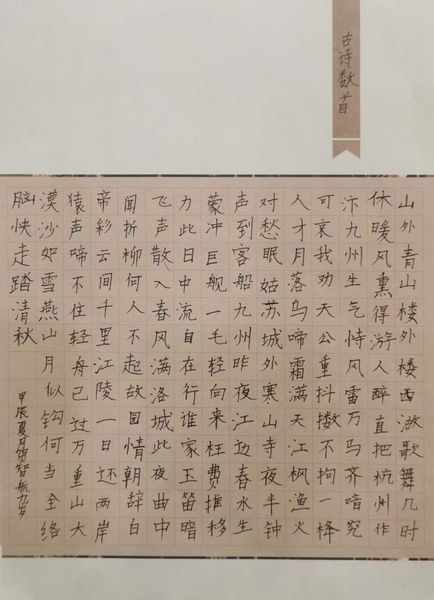 古诗数首
山外青山楼外楼西湖歌舞几时
休暖风熏得游人醉直把杭州作
汴九州生气恃风雷万马齐喑究
可哀我劝天公重抖擞不拘一
人才月落乌啼霜满天江枫渔火
对愁眠姑苏城外寒山寺夜半钟
声到客船九州昨夜江边春水生
蒙冲巨舰一毛轻向来枉费推移
力此日中流自在行谁家玉笛暗
飞声散入春风满洛城此夜曲中
闻折柳何人不起故园情朝辞白
帝彩云间千里江陵一日还两岸
猿声啼不住轻舟已过万重山大
漠沙如雪燕山月似钩何当金络
脑快走踏清秋
甲辰夏月智航九岁